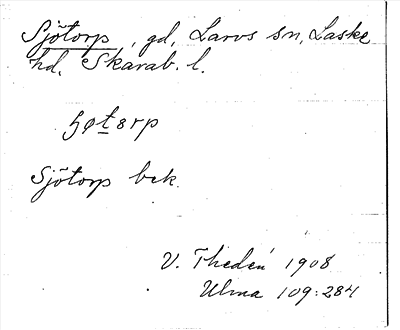 Sjötorp, gd, Larvs sn, Laske
hd. Skarab. l.
Sjötorp bek.
V. Thedén 1908
Ulma 109:284